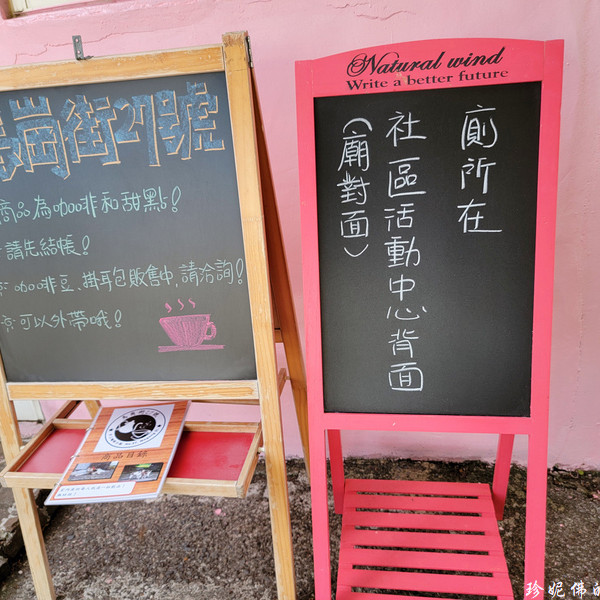 崗街27號
商品為咖啡和甜點!
請先結帳!
咖啡豆、掛耳包販售中,請洽詢!
可以外帶哦!
商品目錄
Natural wind
Write a better future
廁所在
社區活動中心背面
(廟對面)
珍妮佛的